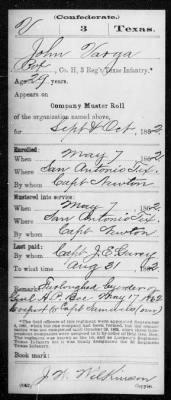 (Confederate.)
V 3 Texas.
John Varga
Pvt, Co. H, 3 Reg't Texas Infantry.*
Age 29 years.
Appears on
Company Muster Roll
of the organization named above,
for Sept & Oct, 1862
Enrolled:
When May 7, 1862
Where San Antonio Tex.
By whom Capt Newton
Mustered into service:
When May 7, 1862
Where San Antonio Tex.
By whom Capt Newton
Last paid:
By whom Capt J. E. Garey
To what time Aug 31, 1862
Remarks: Furloughed by order of
Genl H. P. Bee May 17 1862
Book mark:
J. W. Wilkinson
(642) Copyist.